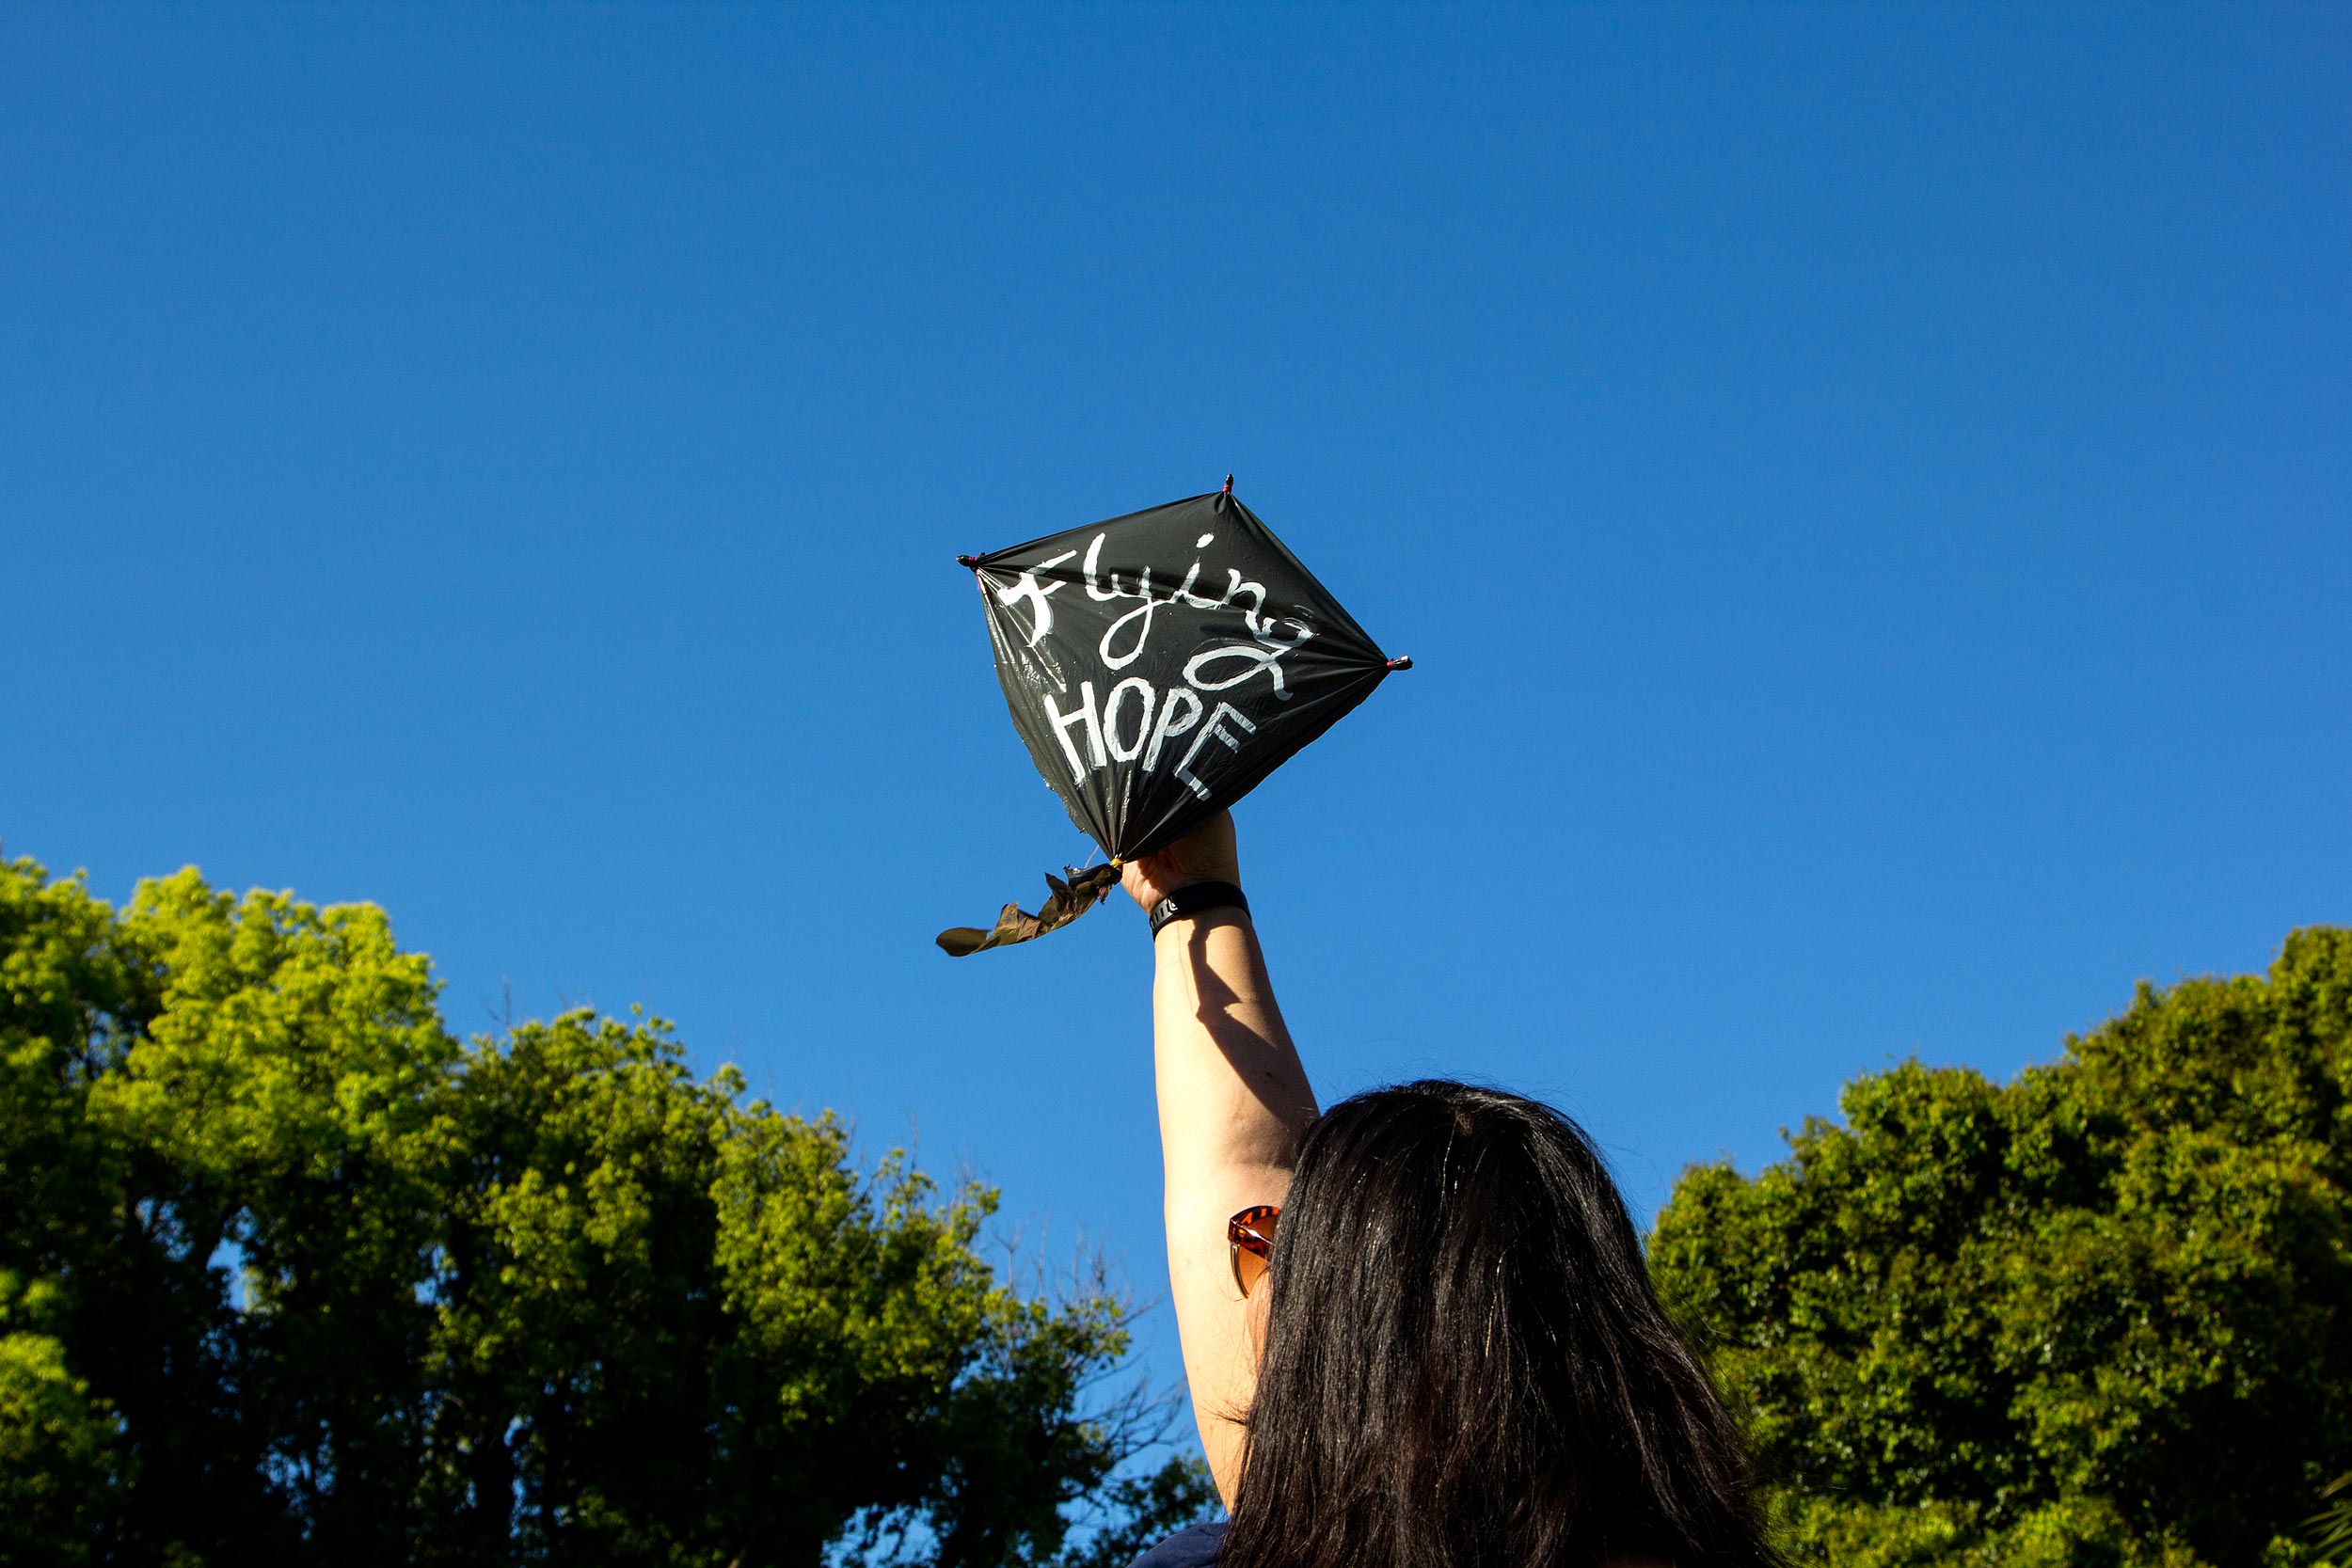 Flying
HOPE